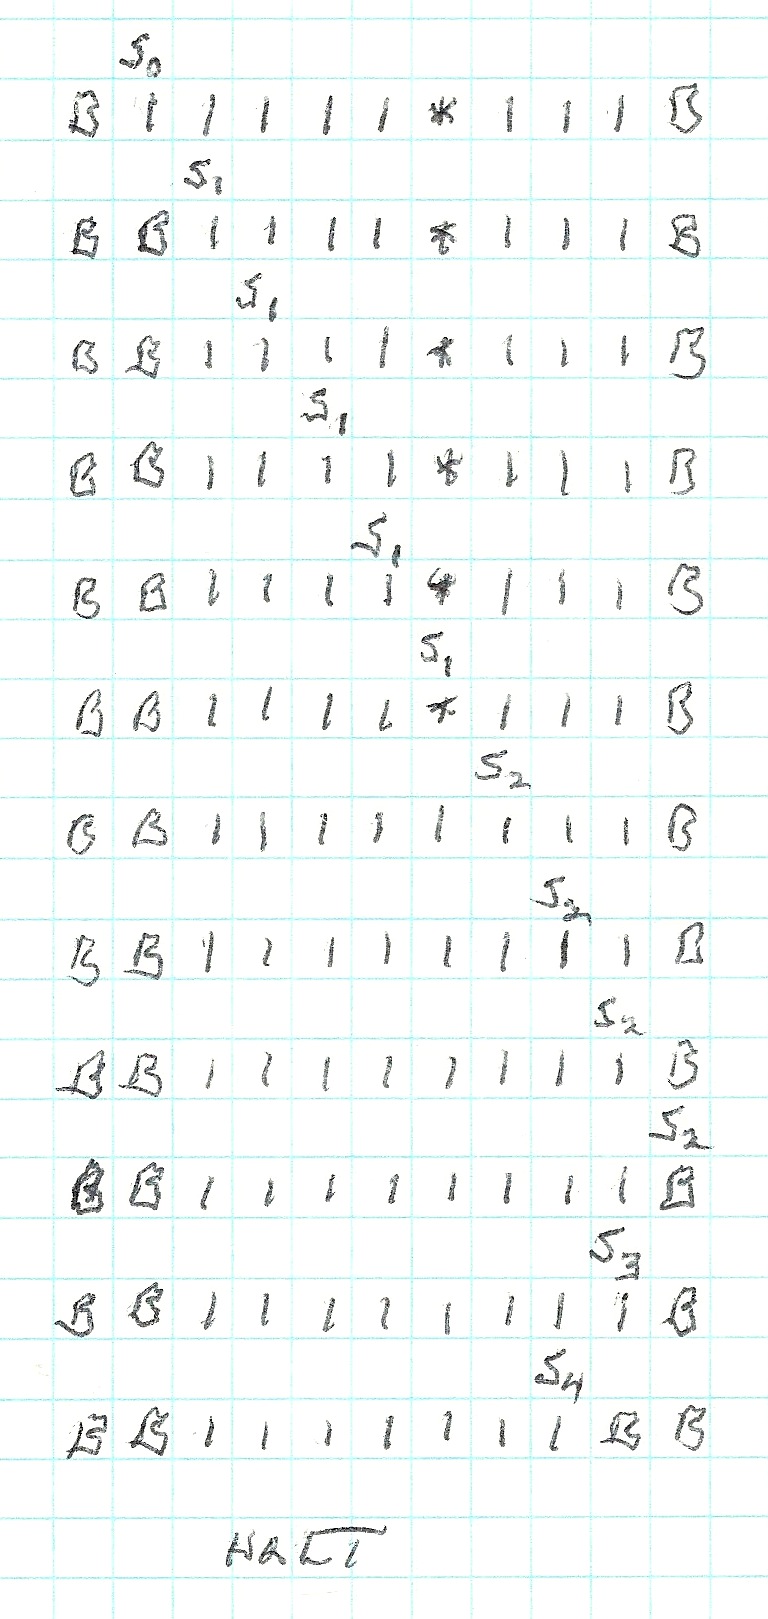 S0
B 1 1 1 1 1 * 1 1 1 B
S1
B B 1 1 1 1 * 1 1 1 B
S1
B B 1 1 1 1 * 1 1 1 B
S1
B B 1 1 1 1 * 1 1 1 B
S1
B B 1 1 1 1 * 1 1 1 B
S1
B B 1 1 1 1 * 1 1 1 B
S2
B B 1 1 1 1 1 1 1 1 B
S2
B B 1 1 1 1 1 1 1 1 B
S2
B B 1 1 1 1 1 1 1 1 B
S2
B B 1 1 1 1 1 1 1 1 B
S3
B B 1 1 1 1 1 1 1 1 B
S4
B B 1 1 1 1 1 1 1 B B
HALT